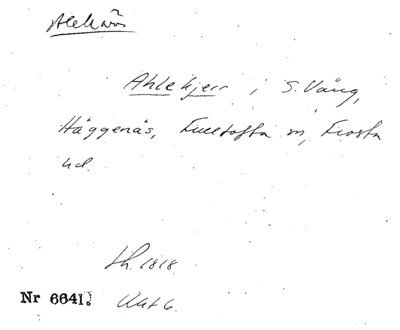 Alekärr
Ahlekjerr i S. Vång,
Häggenäs, Fulltofta sn, Frosta
hd.
Lh. 1818.
Nr 6641. Akt 6.